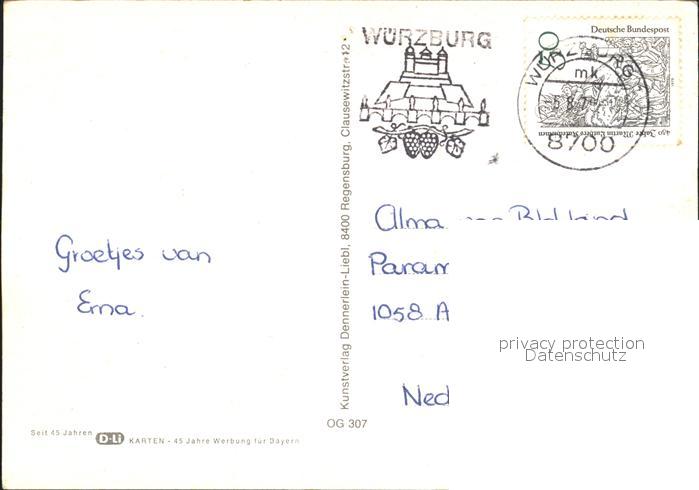 WÜRZBURG
Deutsche Bundespost
50
WÜRZBURG
mk
8700
450 Jahre Martin Luthers Katechismen
Groetjes van
Erna.
Alma
Param
1058 A
Ned
privacy protection
Datenschutz
Kunstverlag Dennerlein-Liebl, 8400 Regensburg, Clausewitzstr. 12
OG 307
Seit 45 Jahren D-Li KARTEN - 45 Jahre Werbung für Bayern